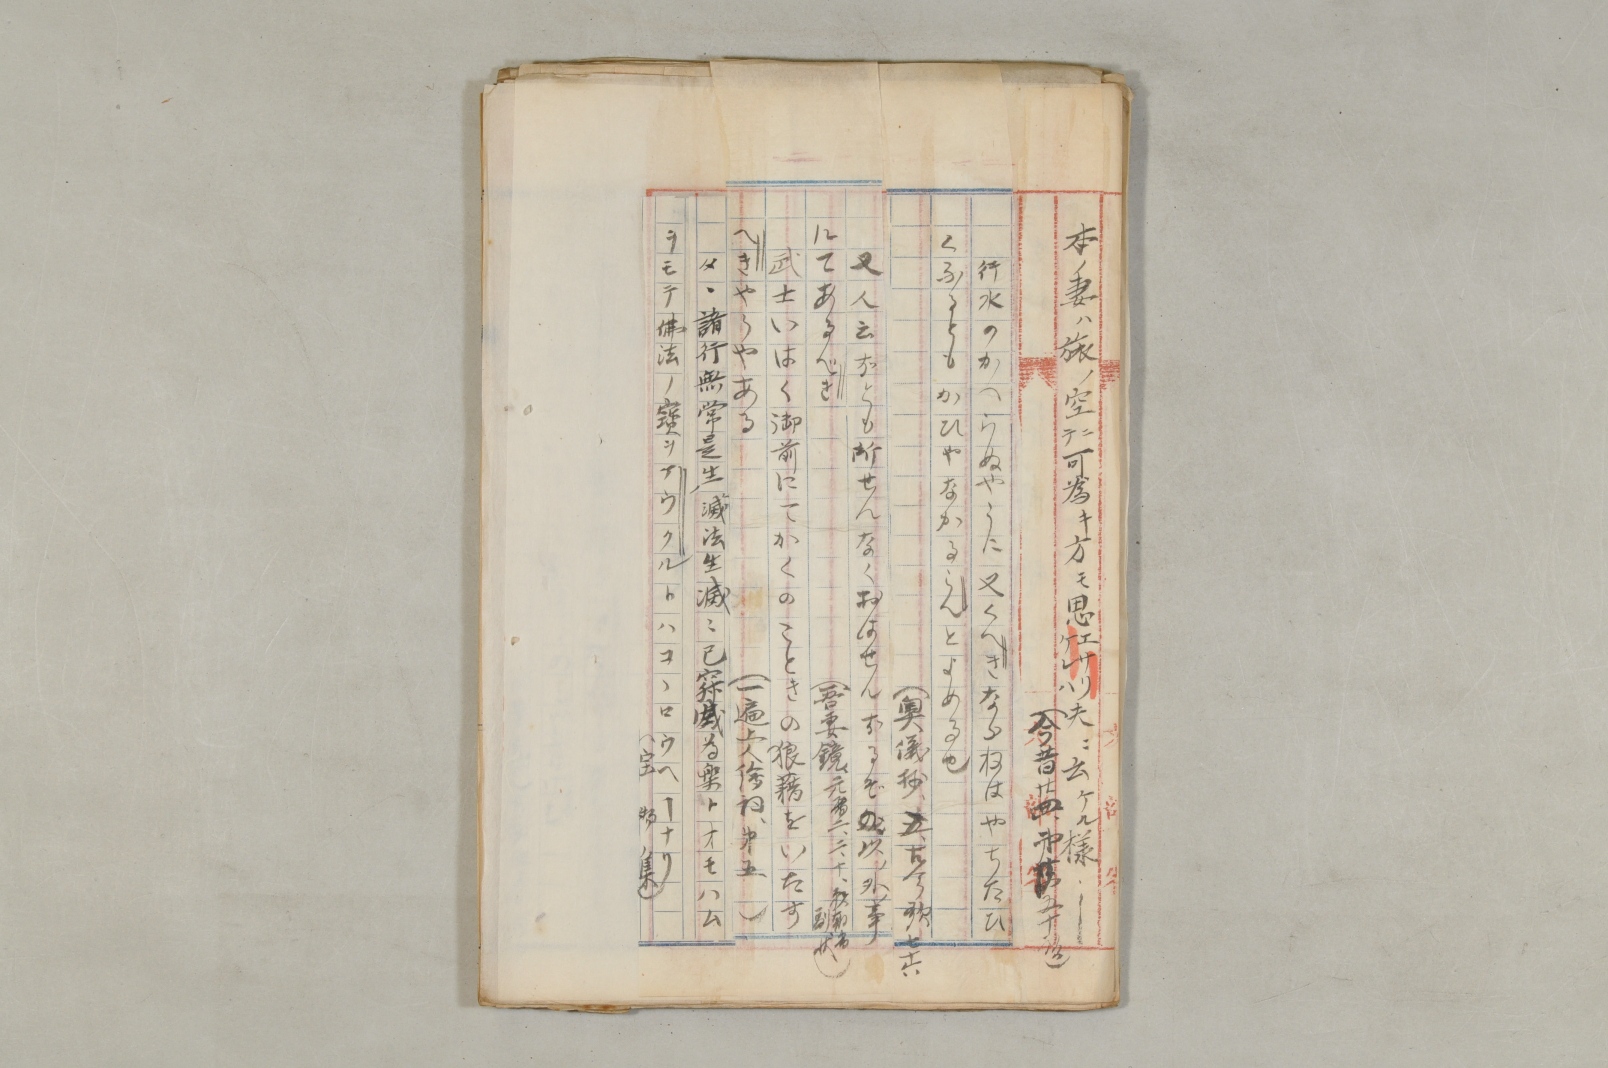 本ノ妻ハ旅ノ空ニテ可為キ方モ思エサリケレハ夫ニ云ケル様、
(今昔廿四、第五十
行水のかへらぬやうに又くへきならねはやちたひ
くふるともかひやなかるらんとよめる也
(奥儀抄、五、古今歌七十六
又人云なくも所せんなくおはせんするぞ以外事
にてあるべき
(吾妻鏡、元暦二、二、十、
武士いはく御前にてかくのことき の狼藉をいたす
へきやうやある
(一遍上人絵詞、第五)
タヽ諸行無常是生滅法生滅ミ已寂滅為楽トオモハム
ヲモテ佛法ノ寶ヲナラウクルトハコヽロウヘーナリ
(宝物集)